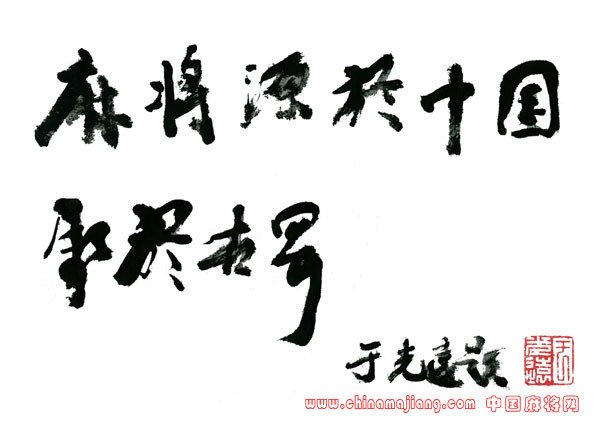 麻将源於中国
屬於世界
于光遠題
www.chinamajiang.com 中国麻将网